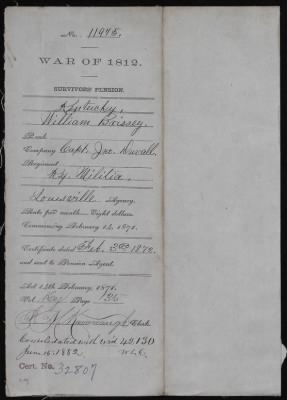 No. 11975.
WAR OF 1812.
SURVIVORS' PENSION.
Kentucky.
William Boissey.
Rank
Company Capt. Jno. Duvall.
Regiment
Ky. Militia.
Louisville Agency.
Rate per month, Eight dollars.
Commencing February 14, 1871.
Certificate dated Feb. 3rd 1872.
and sent to Pension Agent.
Act 14th February, 1871.
Vol. Page 136
Clerk.
Consolidated with
June 16, 1882.
Cert. No. 32807